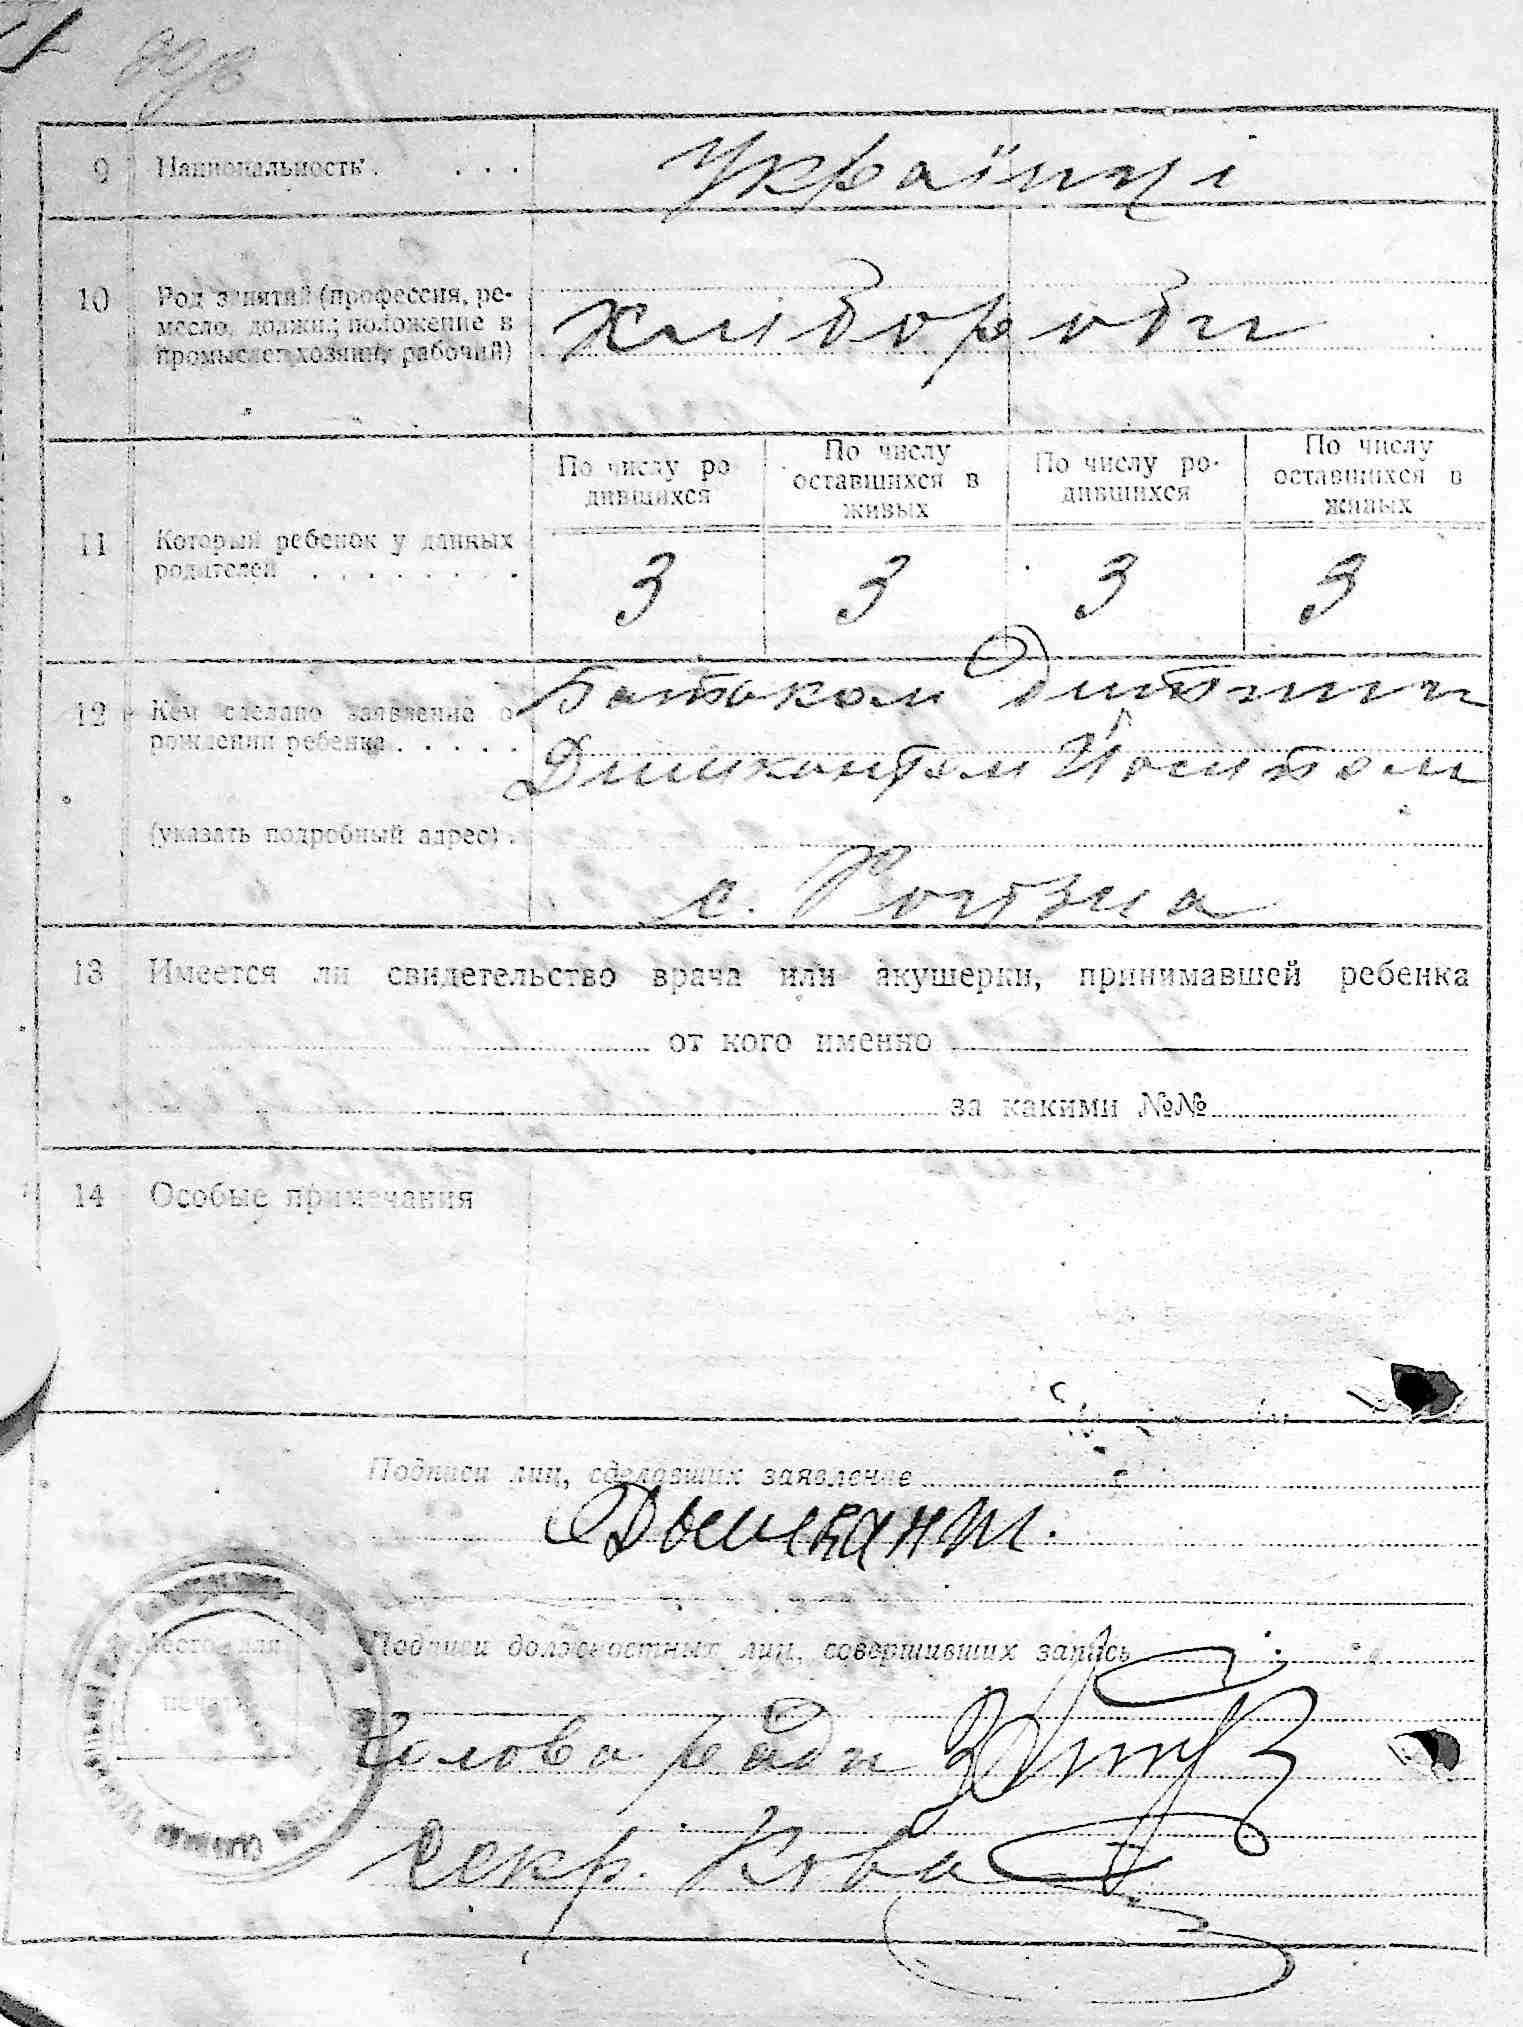 9 Национальность . . . . Українці
10 Род занятий (профессия, ре-
месло, должн.; положение в
промысле: хозяин, рабочий)
Хлібороби
По числу ро-
дившихся
По числу
оставшихся в
живых
По числу ро-
дившихся
По числу
оставшихся в
живых
11 Который ребенок у данных
родителей . . . . . . . .
3 3 3 3
12 Кем сделано заявление о
рождении ребенка . . . . .
Батьком Дитини
Дишкантом Йосипом
(указать подробный адрес) .
с. Рогізна
13 Имеется ли свидетельство врача или акушерки, принимавшей ребенка
от кого именно
за какими №№
14 Особые примечания
Подписи лиц, сделавших заявление
Дышкант.
Место для
печати
Подписи должностных лиц, совершивших запись
Голова ради
Секр. Кова